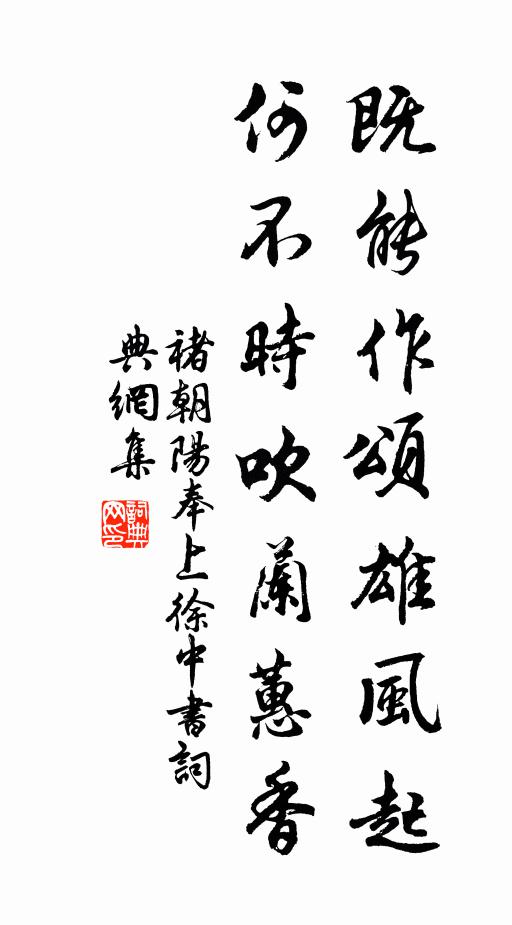 既能作頌雄風起
何不時吹蘭蕙香
褚朝陽奉上徐中書詞
典網集
詞典网印